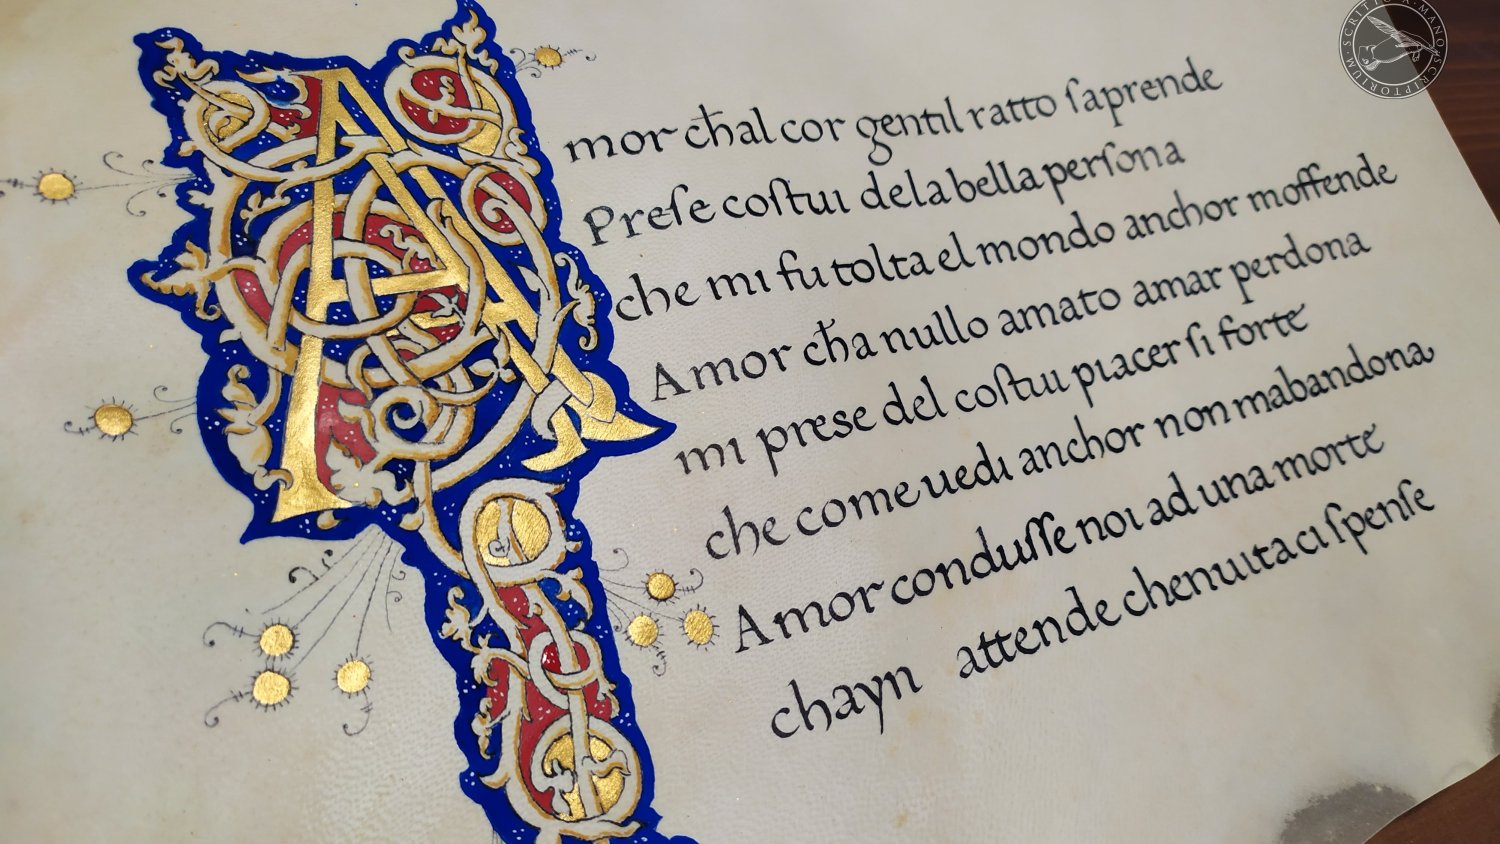 Amor ch̄al cor gentil ratto ſaprende
Preſe coſtui dela bella perſona
che mi fu tolta el mondo anchor moffende
Amor ch̄a nullo amato amar perdona
mi prese del coſtui piacer ſi forte
che come uedi anchor non mabandona
Amor conduſſe noi ad una morte
chayn attende chenuita ci ſpenſe
SCRITTO A MANO SCRIPTORIUM